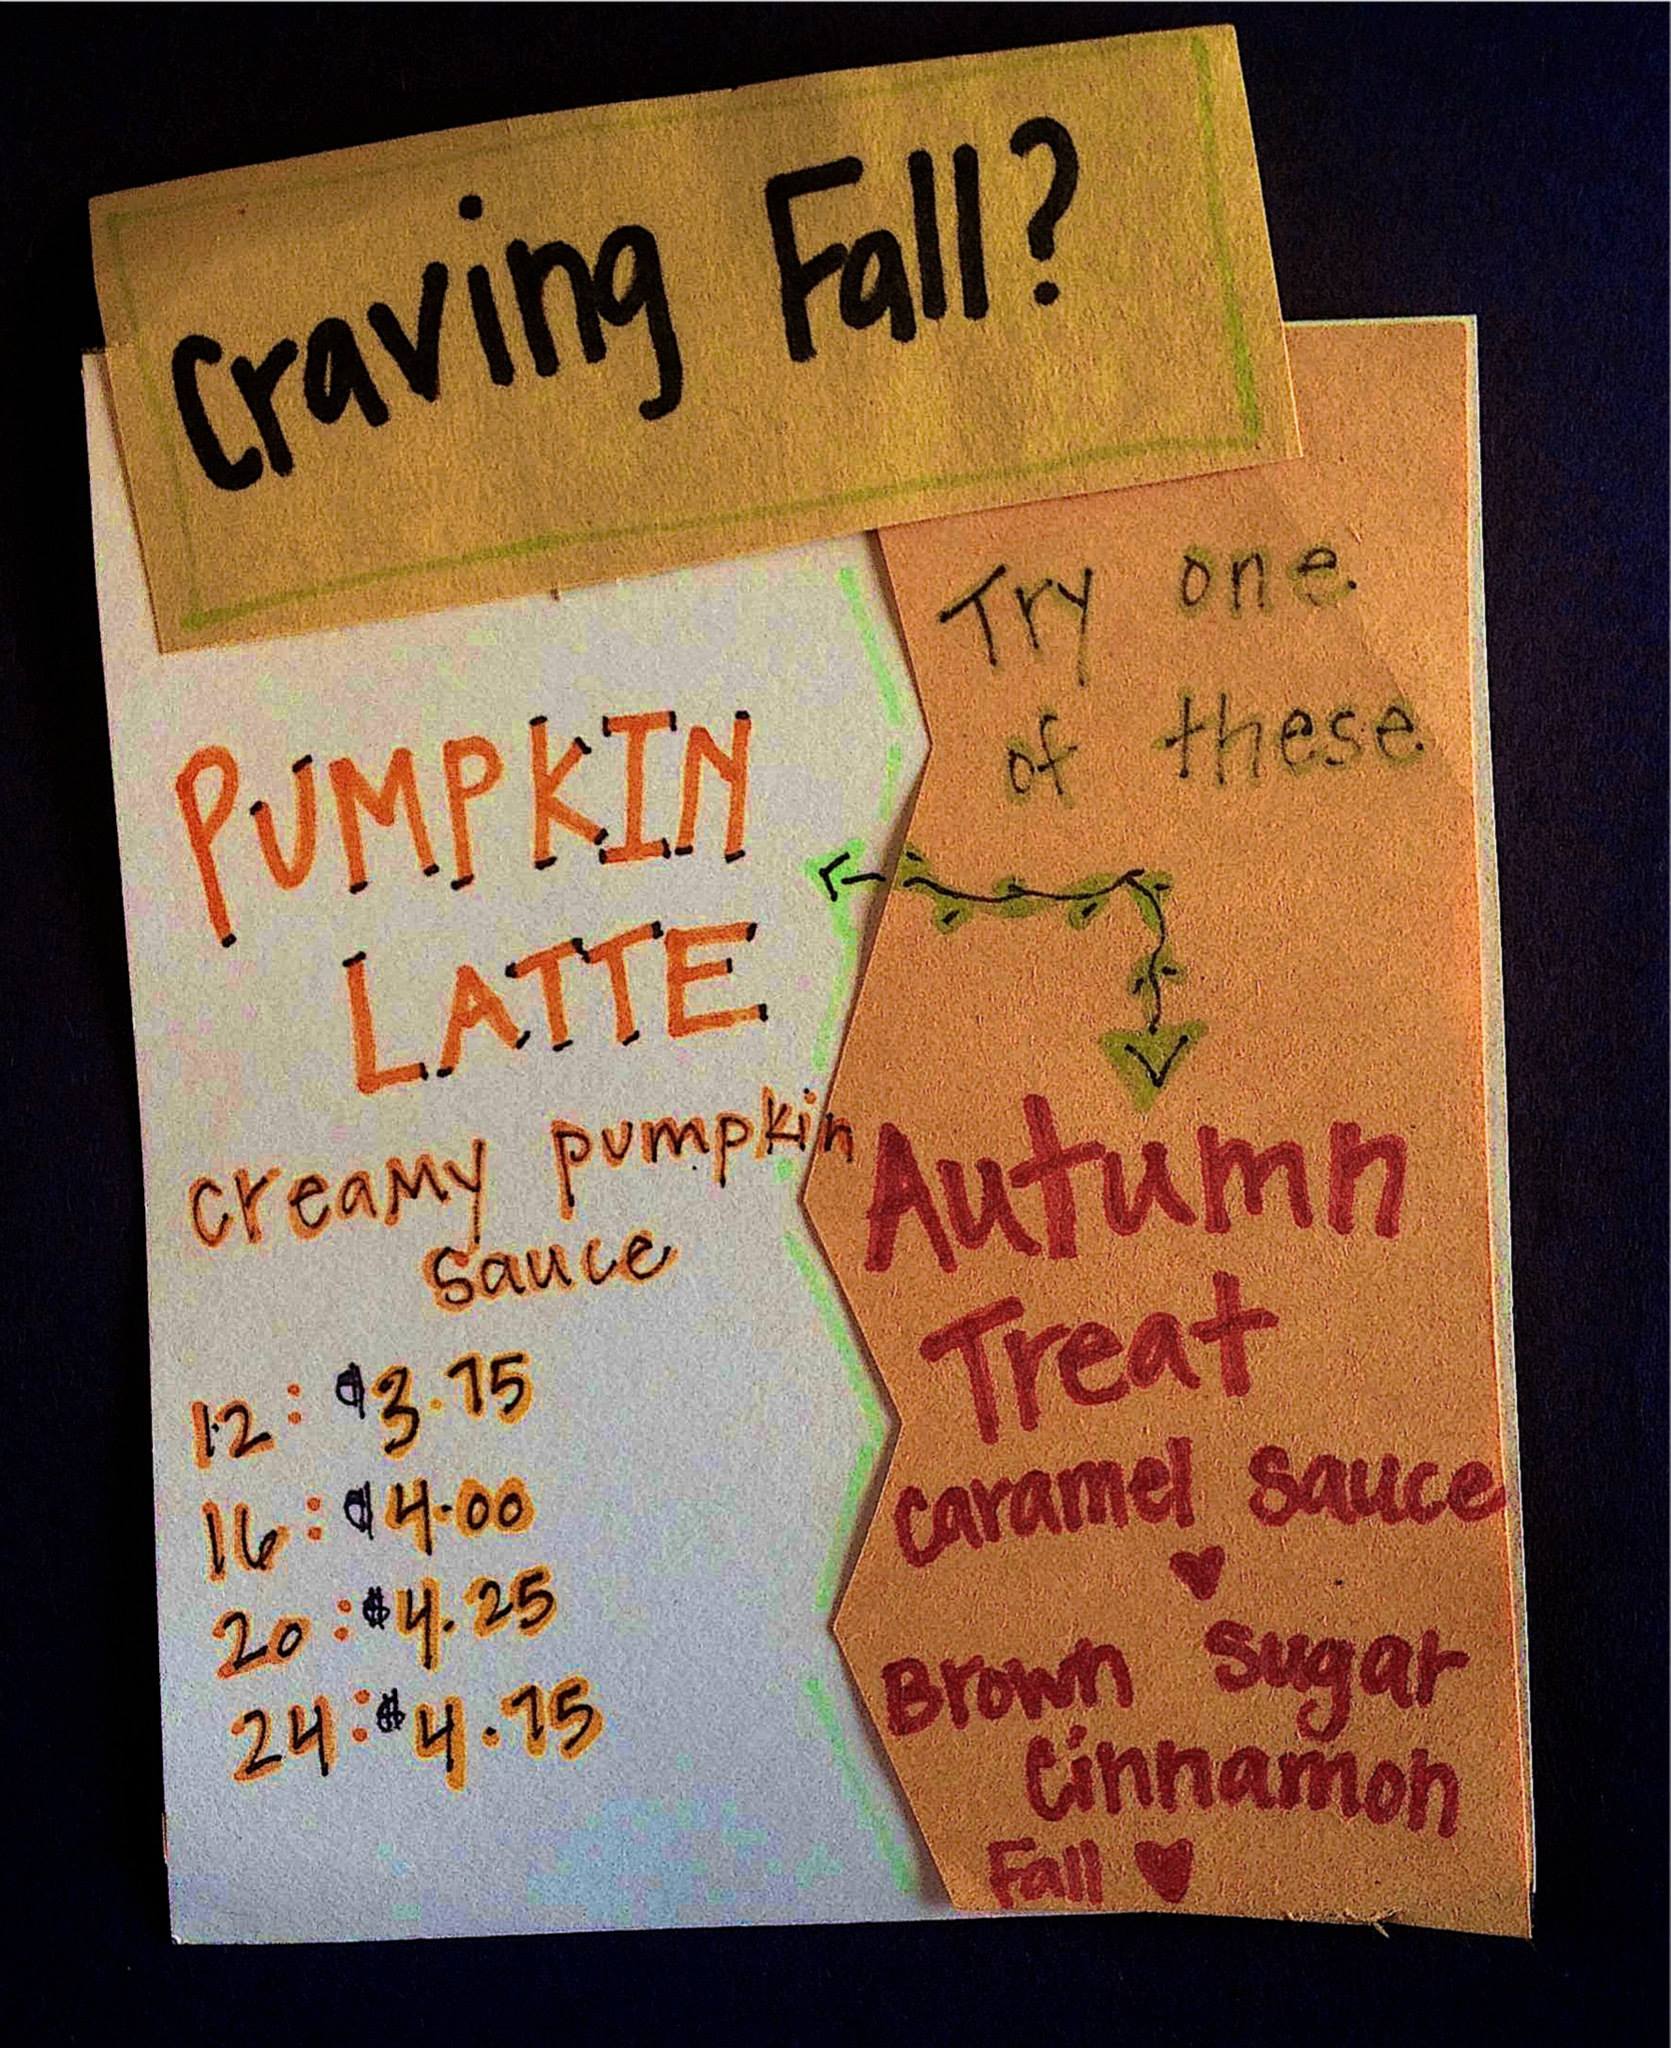 Craving Fall?
Try one
of these
PUMPKIN
LATTE
creamy pumpkin
sauce
12: $3.75
16: $4.00
20: $4.25
24: $4.75
Autumn
Treat
caramel sauce
Brown sugar
Cinnamon
Fall